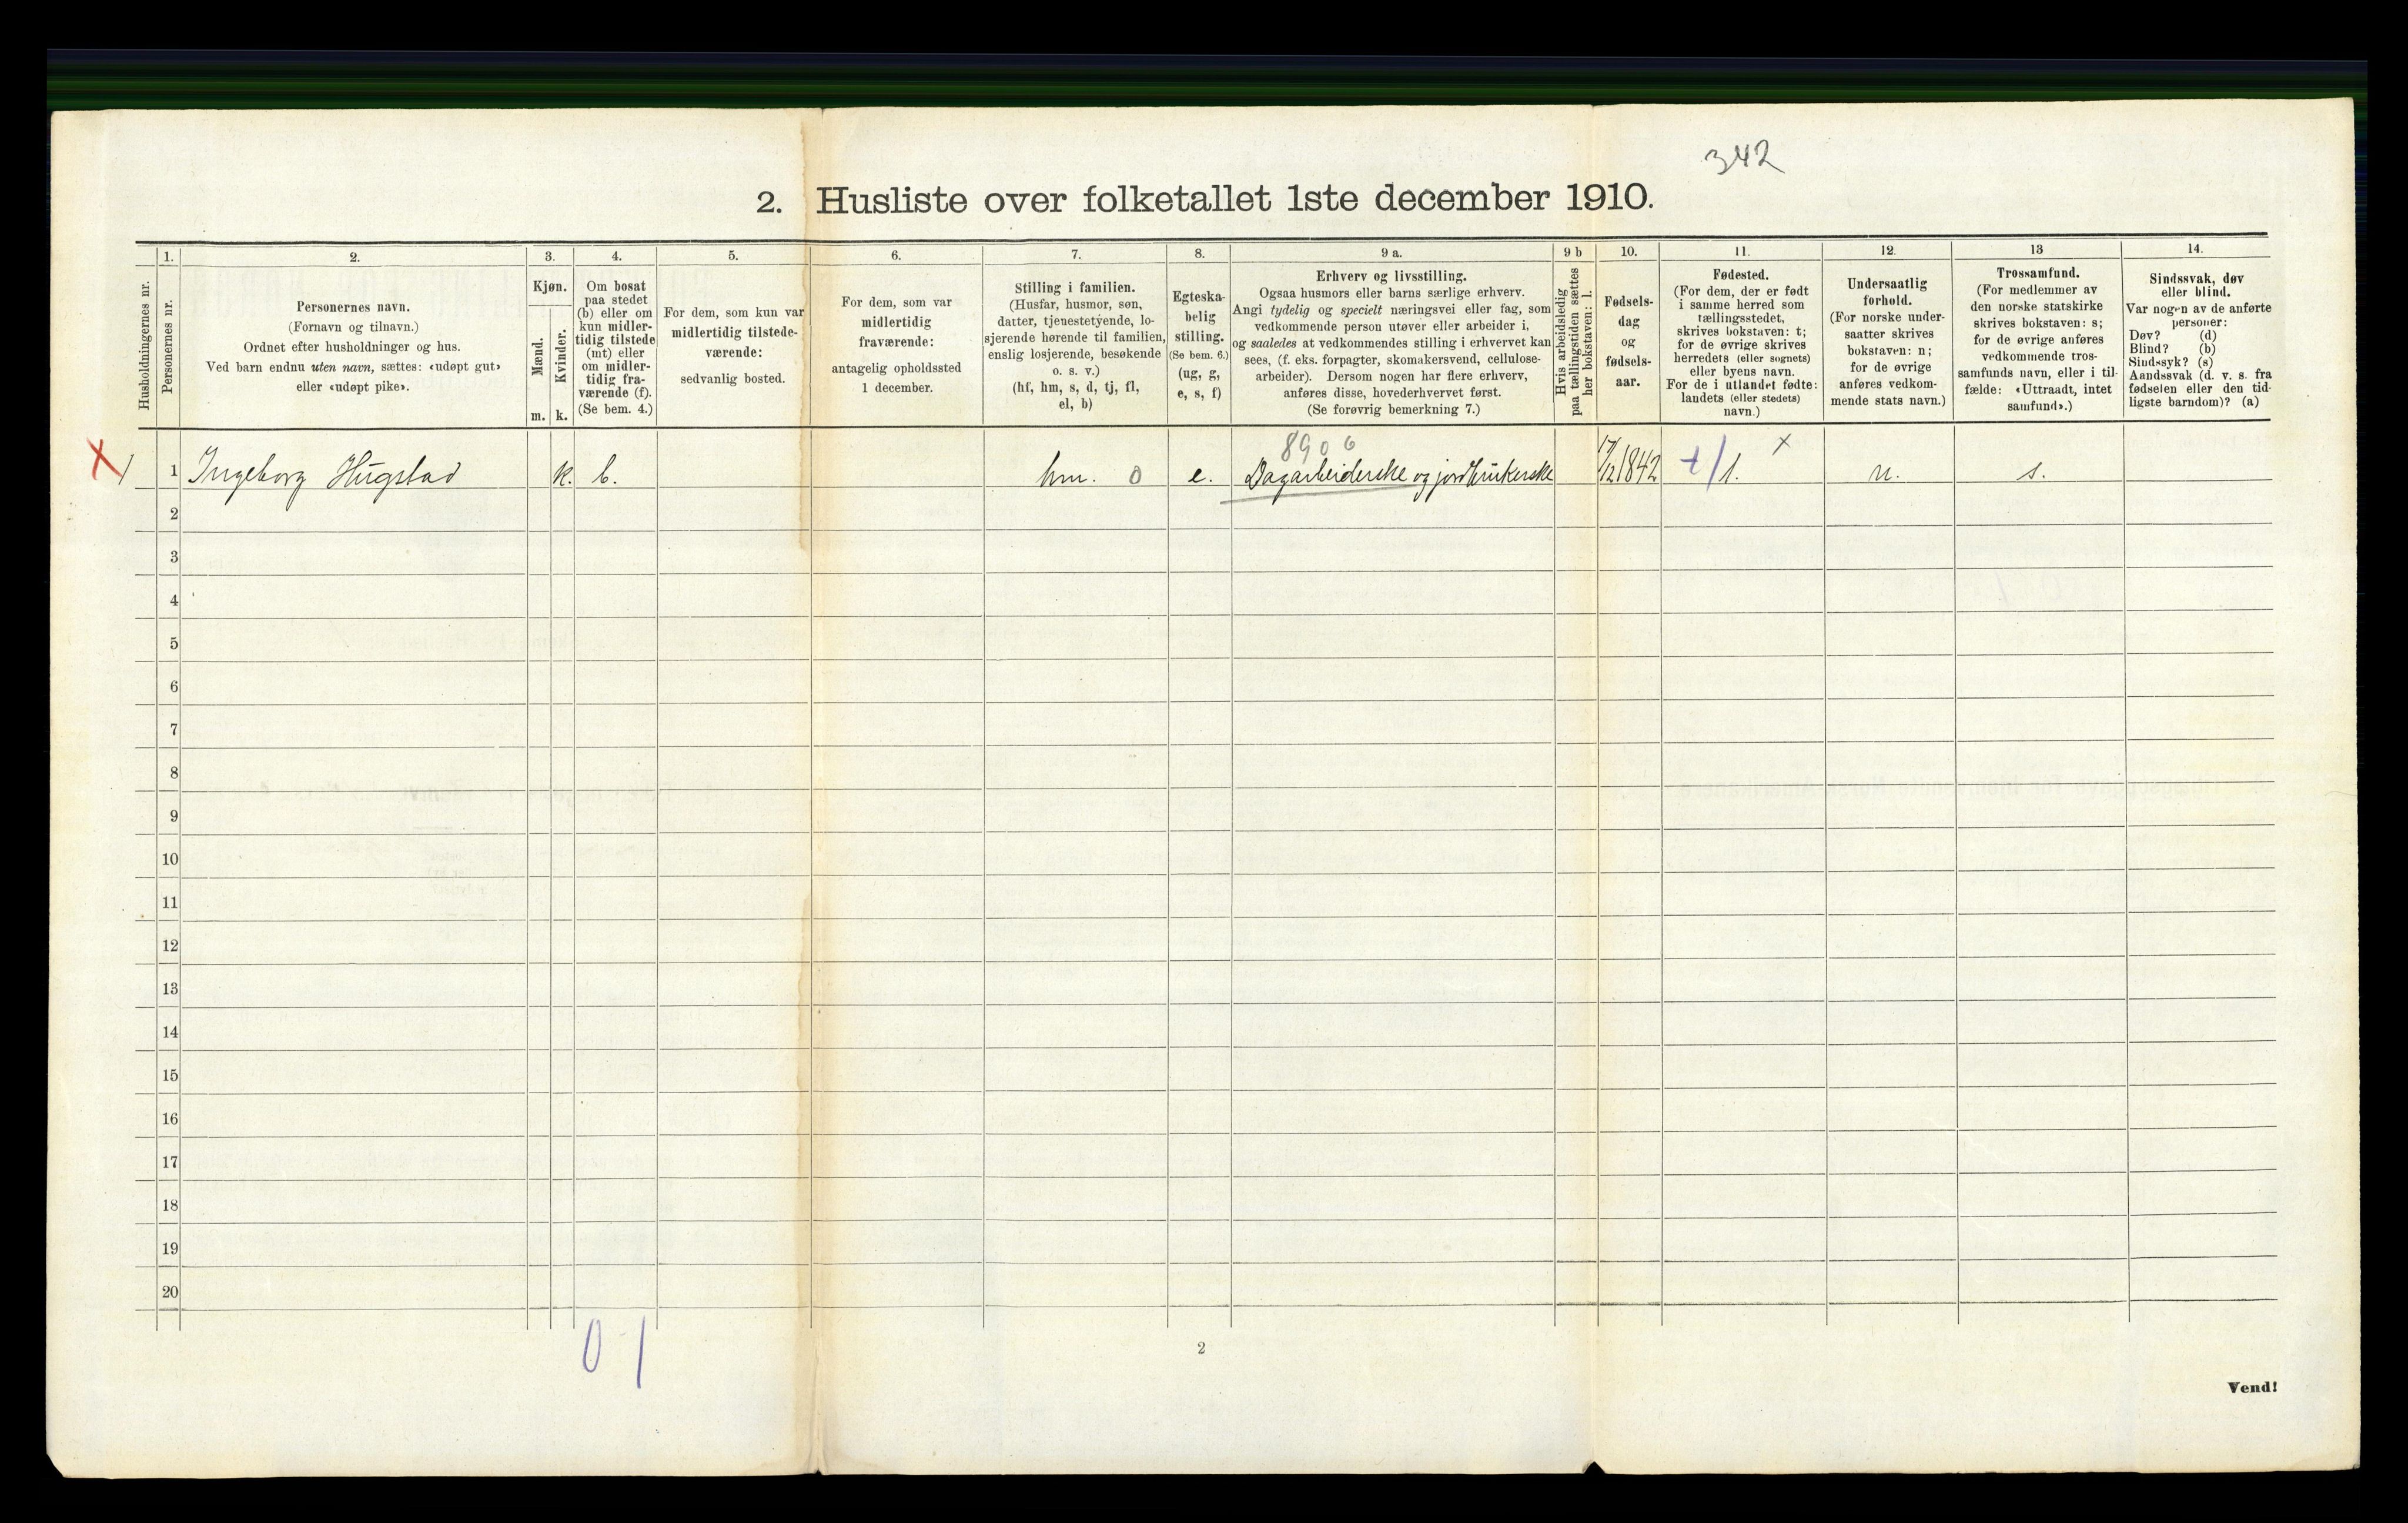 342
2. Husliste over folketallet 1ste december 1910.
Husholdningernes nr.
1.
Personernes nr.
2.
Personernes navn.
(Fornavn og tilnavn.)
Ordnet efter husholdninger og hus.
Ved barn endnu uten navn, sættes: «udøpt gut»
eller «udøpt pike».
3.
Kjøn.
Mænd.
m.
Kvinder.
k.
4.
Om bosat
paa stedet
(b) eller om
kun midler-
tidig tilstede
(mt) eller
om midler-
tidig fra-
værende (f).
(Se bem. 4.)
5.
For dem, som kun var
midlertidig tilstede-
værende:
sedvanlig bosted.
6.
For dem, som var
midlertidig
fraværende:
antagelig opholdssted
1 december.
7.
Stilling i familien.
(Husfar, husmor, søn,
datter, tjenestetyende, lo-
sjerende hørende til familien,
enslig losjerende, besøkende
o. s. v.)
(hf, hm, s, d, tj, fl,
el, b)
8.
Egteska-
belig
stilling.
(Se bem. 6.)
(ug, g,
e, s, f)
9 a.
Erhverv og livsstilling.
Ogsaa husmors eller barns særlige erhverv.
Angi tydelig og specielt næringsvei eller fag, som
vedkommende person utøver eller arbeider i,
og saaledes at vedkommendes stilling i erhvervet kan
sees, (f. eks. forpagter, skomakersvend, cellulose-
arbeider). Dersom nogen har flere erhverv,
anføres disse, hovederhvervet først.
(Se forøvrig bemerkning 7.)
9 b
Hvis arbeidsledig
paa tællingstiden sættes
her bokstaven: l.
10.
Fødsels-
dag
og
fødsels-
aar.
11.
Fødested.
(For dem, der er født
i samme herred som
tællingsstedet,
skrives bokstaven: t;
for de øvrige skrives
herredets (eller sognets)
eller byens navn.
For de i utlandet fødte:
landets (eller stedets)
navn.)
12.
Undersaatlig
forhold.
(For norske under-
saatter skrives
bokstaven: n;
for de øvrige
anføres vedkom-
mende stats navn.)
13
Trossamfund.
(For medlemmer av
den norske statskirke
skrives bokstaven: s;
for de øvrige anføres
vedkommende tros-
samfunds navn, eller i til-
fælde: «Uttraadt, intet
samfund».)
14.
Sindssvak, døv
eller blind.
Var nogen av de anførte
personer:
Døv? (d)
Blind? (b)
Sindssyk? (s)
Aandssvak (d. v. s. fra
fødselen eller den tid-
ligste barndom)? (a)
8906
X 1 1 Ingeborg Hugstad k. b. hm. 0 e. Dagarbeiderske og jordbrukerske 17/12 1842 t/1. x n. s.
2
3
4
5
6
7
8
9
10
11
12
13
14
15
16
17
18
19
20
0 1
2
Vend!